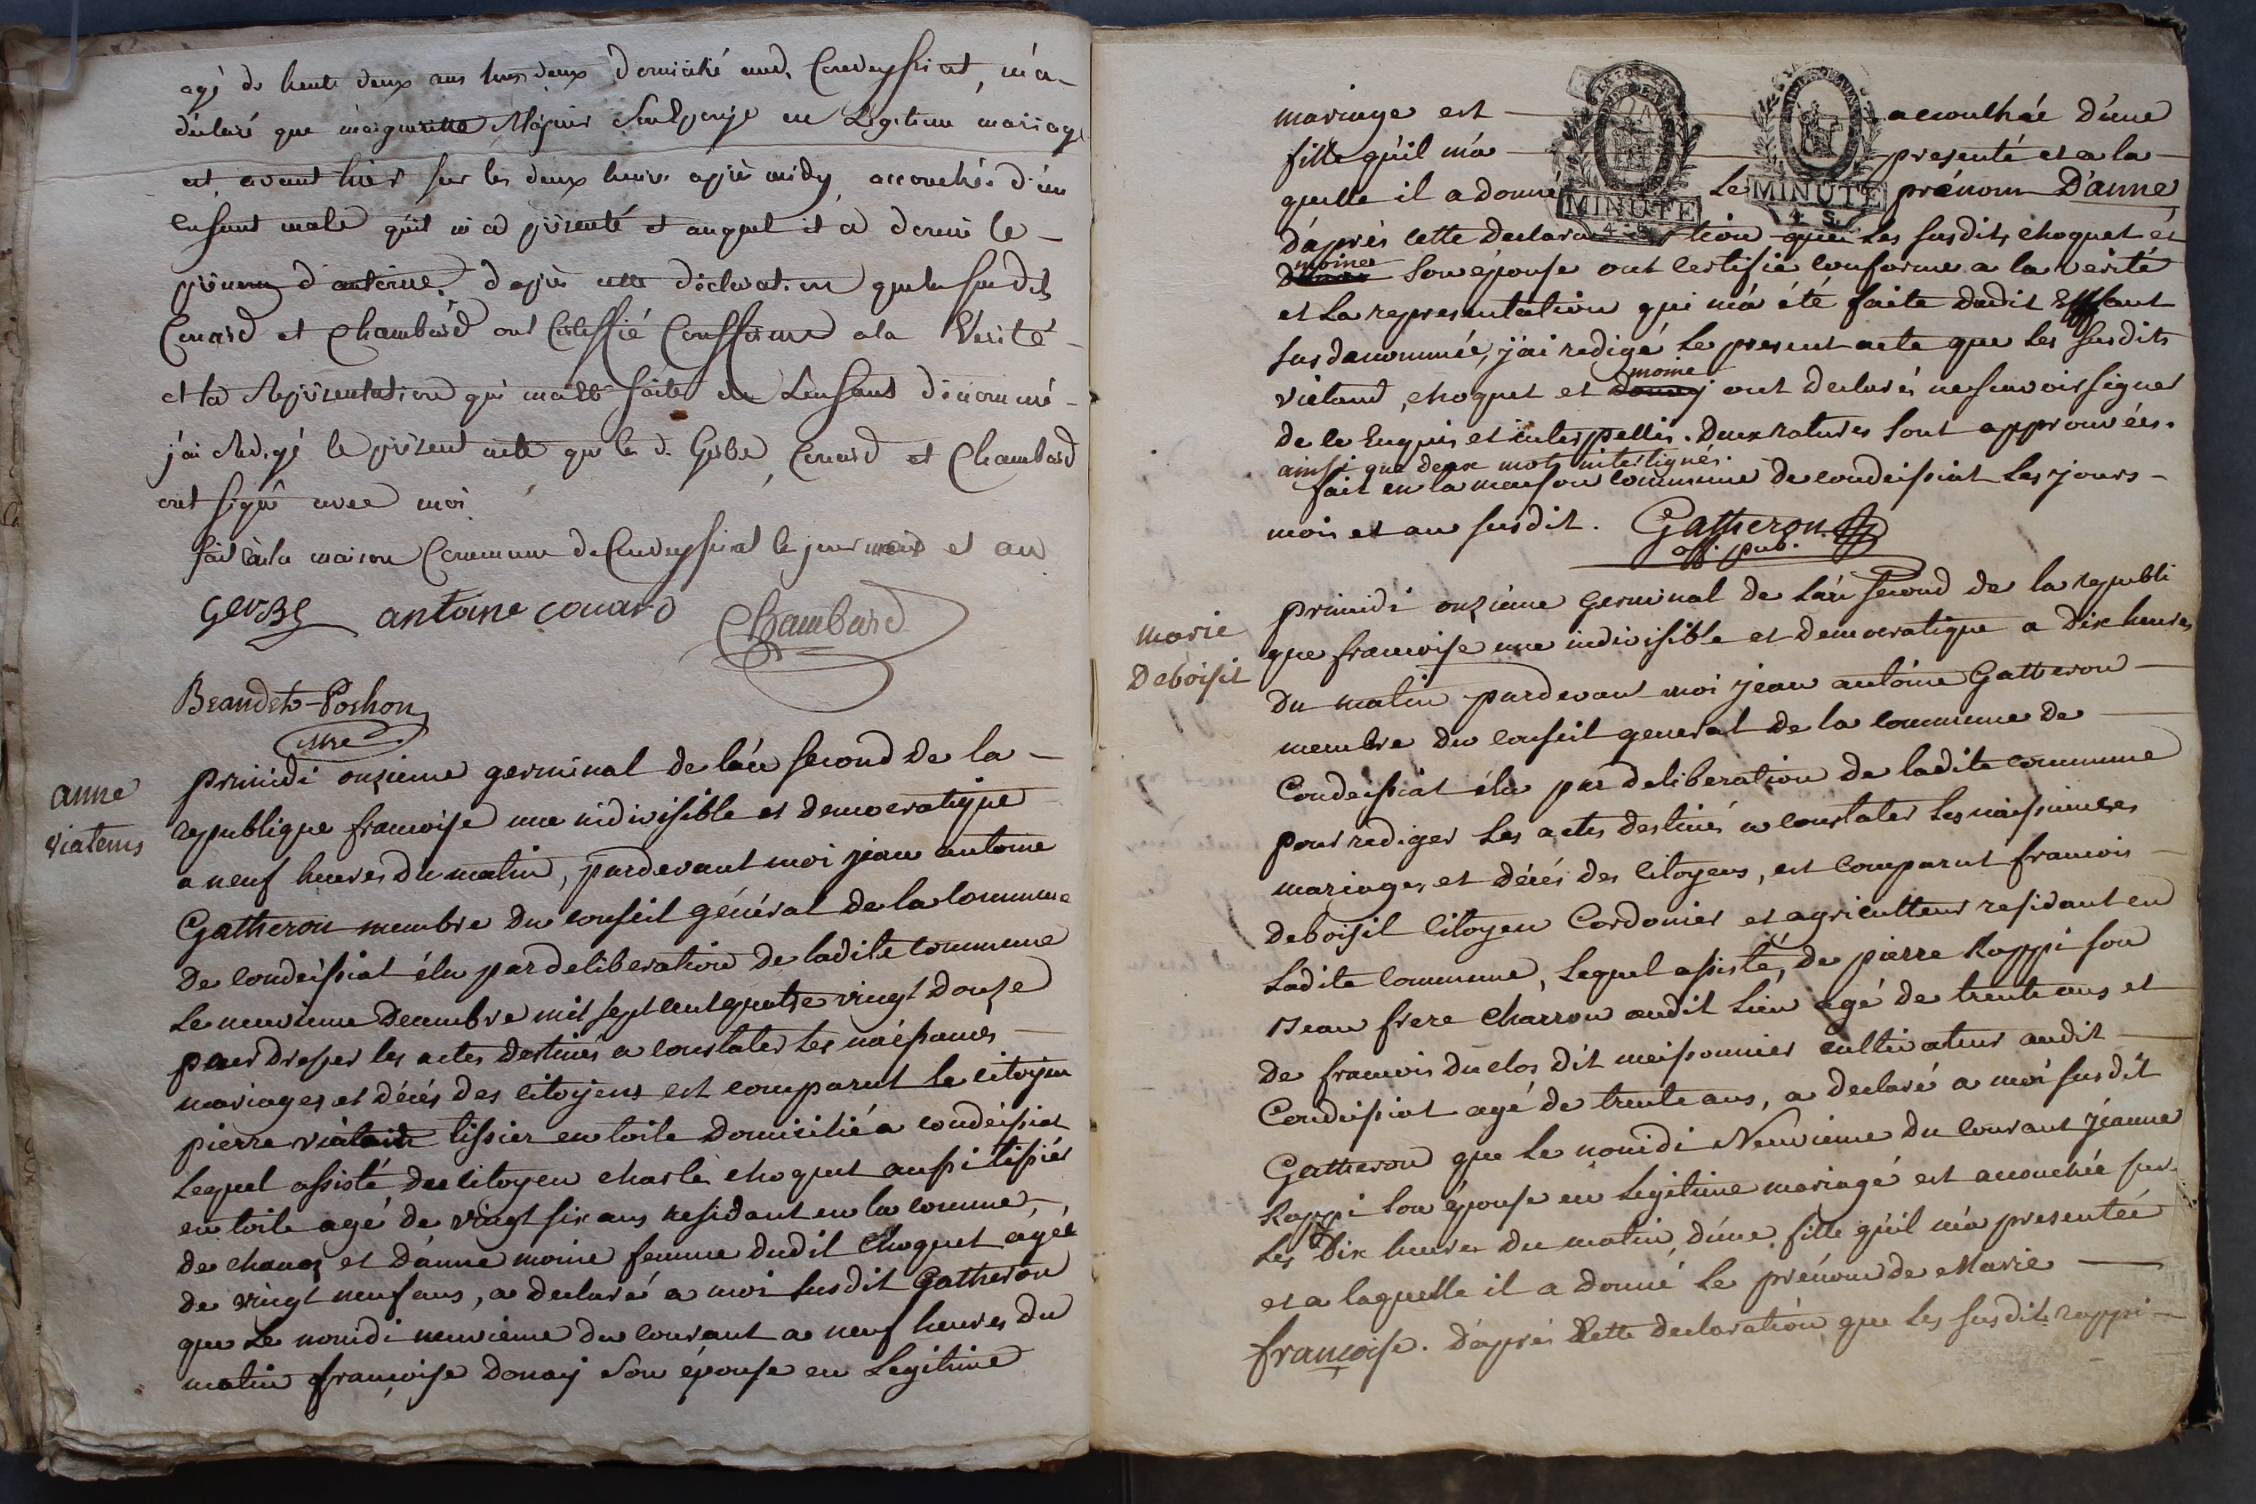 agé de trente deux ans tous deux domicilié aud. Condeyssiat, m'a
déclaré que margueritte son Epouse en Légitime mariage
est avant hier sur les deux heures après midy accouchée d'un
enfant male qu'il m'a présenté et auquel il a donné le
prénom d'antoine, d'après cette déclaration que les susdits
Conard et Chambard ont Certiffié Conforme a la Vérité
et la Représentation qui m'a été faite de L'enfant dénommé
j'ai rédigé le présent acte que le d. Gerbe, Conard et Chambard
ont signé avec moi
fait à la maison Commune de Condeyssiat le jour mois et an
Gerbe antoine conard Chambard
Beaudet-Pochon
anne
viatems
primidi onzieme germinal de l'an second de la
republique francoise une indivisible et democratique
a neuf heures du matin, pardevant moi jean antoine
Gatheron membre du conseil général de la commune
de condeissiat élu par deliberation de ladite commune
le neuvieme decembre mil sept cent quatre vingt douze
pour dresser les actes destinés a constater les naissances
mariages et décés des citoyens est comparut le citoyen
pierre tissier en toile domicilié a condeissiat
lequel assisté du citoyen charle choquet aussi tissier
en toile agé de vingt six ans residant en la comune
de chanoz et d'anne moine femme dudit choquet agée
de vingt neuf ans, a declaré a moi susdit Gatheron
que le nonidi neuvieme du courant a neuf heures du
matin françoise donay son épouse en legitime
mariage est accouchée d'une
fille qu'il m'a presenté et a la
quelle il a donné le prénom D'anne
MINUTE
4. S.
MINUTE
4. S.
d'après cette declaration que les susdits choquet et
moine son épouse ont certifié conforme a la verité
et la representation qui m'a été faite dudit Enfant
susdenommée, j'ai redigé le present acte que les susdits
moine
viatand, choquet et donay ont declarés ne scavoir signer
de ce enquis et interpellés. deux ratures sont approuvées.
ainsi que deux mots interlignés.
fait en la maison commune de condeissiat les jours
mois et an susdit. Gatheron
off. pub.
marie
Deboisit
primidi onzieme Germinal de l'an second de la republi
que francoise une indivisible et democratique a dix heures
du matin pardevant moi jean antoine Gatheron
membre du conseil general de la commune de
Condeissiat élu par deliberation de ladite commune
pour rediger les actes destinés a constater les naissances
mariages et décés des citoyens, est comparut francois
deboisit citoyen Cordonier et agriculteur residant en
ladite commune, lequel assisté, de pierre Rappi son
Beau frere charron audit lieu agé de trente ans et
de francois duclos dit meissonnier cultivateur audit
Condeissiat agé de trente ans, a declaré a moi susdit
Gatheron que le nonidi Neuvieme du courant jeanne
Rappi son épouse en legitime mariage est accouchée sur
les dix heures du matin d'une fille qu'il m'a presentée
et a laquelle il a donné le prénom de Marie
françoise. d'après Cette declaration que les susdits rappi